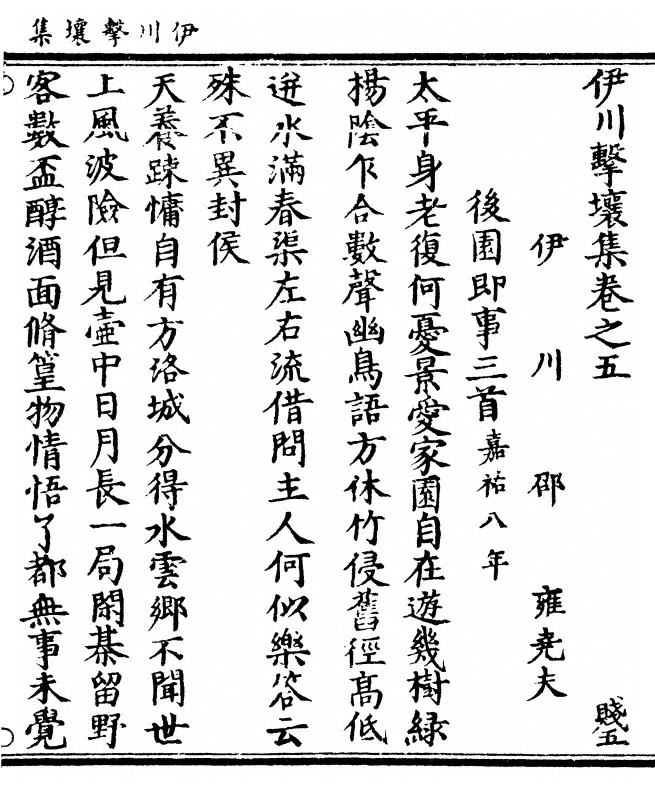 伊川擊壤集
伊川擊壤集卷之五
賤五
伊川邵雍堯夫
後園即事三首嘉祐八年
太平身老復何憂景愛家園自在遊幾樹緑
楊陰乍合數聲幽鳥語方休竹侵舊徑高低
迸水滿春渠左右流借問主人何似樂答云
殊不異封侯
天養踈慵自有方洛城分得水雲鄉不聞世
上風波險但見壷中日月長一局閑棊留野
客數盃醇酒面脩篁物情悟了都無事未覺